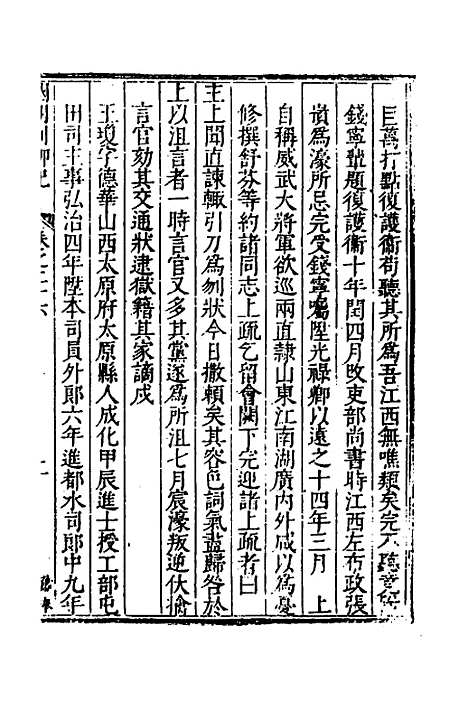 巨萬打點復護衛苟聽其所為吾江西無噍類矣完不聽竟從
錢寧輩題復護衛十年閏四月改吏部尚書時江西左布政張
嵿為濠所忌完受錢寧囑陞光祿卿以遠之十四年三月　上
自稱威武大將軍欲巡兩直隷山東江南湖廣内外咸以為憂
修撰舒芬等約諸同志上疏乞留會闕下完迎諸上疏者曰
主上聞直諫輙引刀為刎狀今日撒賴矣其容色詞氣盖歸咎於
上以沮言者一時言官又多其黨遂為所沮七月宸濠叛逆伏擒
言官劾其交通狀逮獄籍其家謫戍
王瓊字德華山西太原府太原縣人成化甲辰進士授工部屯
田司主事弘治四年陞本司員外郎六年進都水司郎中九年
國朝列卿記
卷之二十六